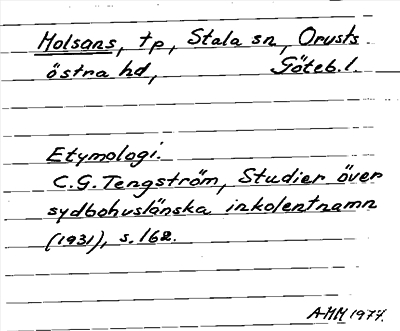 Holsans, tp, Stala sn, Orusts
östra hd, Göteb. l.
Etymologi.
C.G. Tengström, Studier över
sydbohuslänska inkolentnamn
(1931), s. 162.
AMM 1977.